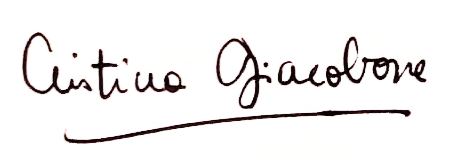 Cristina Giacobone